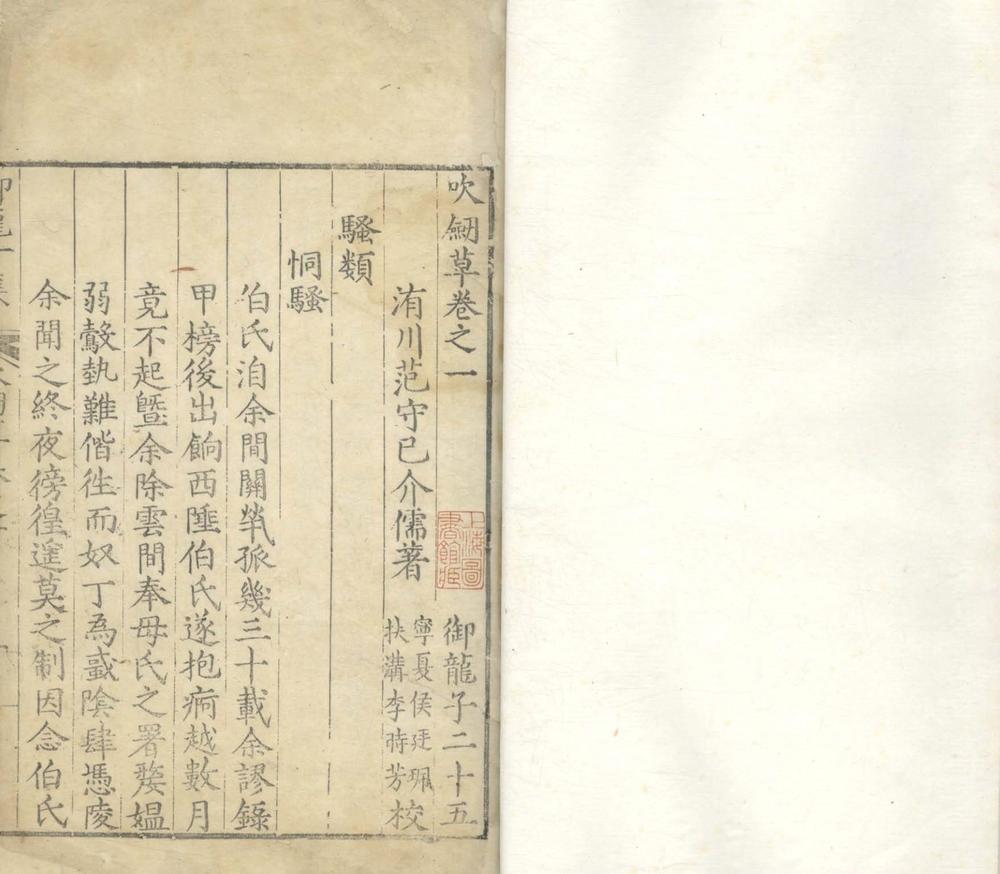 吹劒草卷之一 御龍子二十五
洧川范守已介儒著 寧夏侯廷珮
扶溝李時芳校
騷類
恫騷
伯氏洎余間關煢孤幾三十載余謬錄
甲榜後出餉西陲伯氏遂抱痾越數月
竟不起曁余除雲間奉母氏之署嫠媼
弱鷇埶難偕徃而奴丁為蠈陰肆憑陵
余聞之終夜徬徨遑莫之制因念伯氏
御龍子集
上海圖書館藏